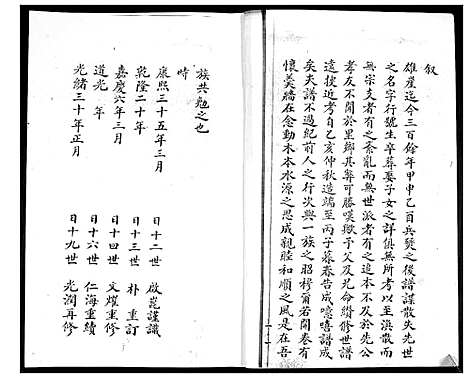 叙
雄産迄今三百餘年甲申乙酉兵燹之後譜諜散失先世
之名字行號生卒葬娶子女之詳俱無所考以至渙散而
無宗支者有之紊亂而無世派者有之追本不及於先公
孝友不聞於里鄉其弊可勝嘆歟予父及兄命纉修世譜
遠搜近考自乙亥仲秋造端至丙子暮春告成噫嘻譜成
矣夫譜不過紀前人之行次與一族之昭穆爾若開卷有
懷羹牆在念動木本水源之思成親睦和順之風是在吾
族共勉之也
時
康熙三十五年三月 日十二世 啟崑謹識
乾隆二十年 日十三世 朴 重訂
嘉慶六年三月 日十四世 文燿重修
道光 年 日十六世 仁海重續
光緒三十年正月 日十九世 光潤再修